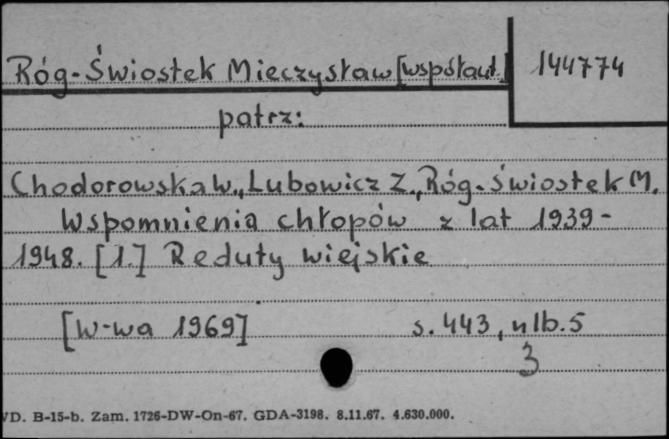 Róg-Świostek Mieczysław [współaut.]
144774
patrz:
Chodorowska W., Lubowicz Z., Róg-Świostek M.
Wspomnienia chłopów z lat 1939-
1948. [1.] Reduty wiejskie
[W-wa 1969] s. 443, nlb. 5
3
VD. B-15-b. Zam. 1726-DW-On-67. GDA-3198. 8.11.67. 4.630.000.